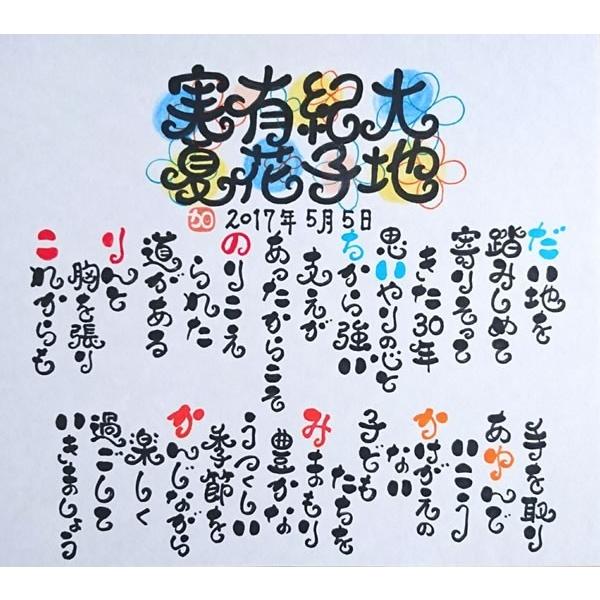 大地
紀子
有花
実夏
2017年5月5日
加
だい地を
踏みしめて
寄りそって
きた30年
思いやりの心と
ちから強い
支えが
あったからこそ
のりこえ
られた
道がある
りんと
胸を張り
これからも
手を取り
あゆんで
いこう
かけがえの
ない
子ども
たちを
みまもり
豊かな
うつくしい
季節を
かんじながら
楽しく
過ごして
いきましょう